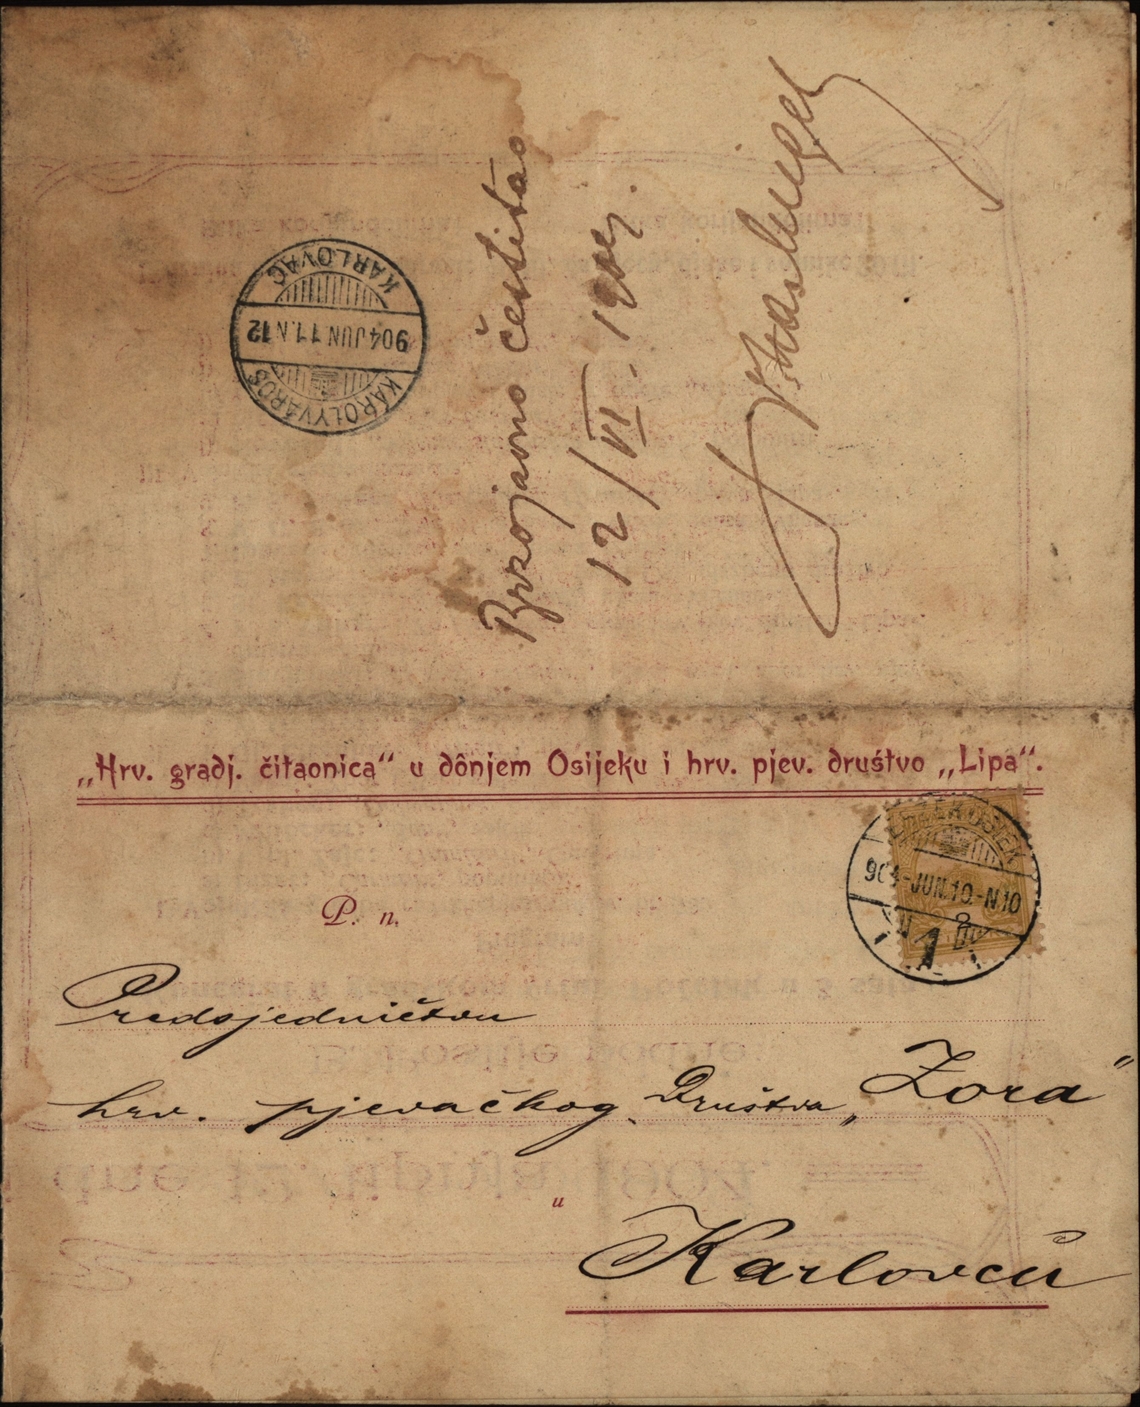 Brzojavno čestitao
12/VI. 1904.
KARLOVAC
904 JUN 11. N 12
KÁROLYVÁROS
„Hrv. gradj. čitaonica“ u dônjem Osijeku i hrv. pjev. društvo „Lipa“.
904 -JUN.10.-N10
1
P. n.
Predsjedničtvu
hrv. pjevačkog Društva „Zora“
u
Karlovcu